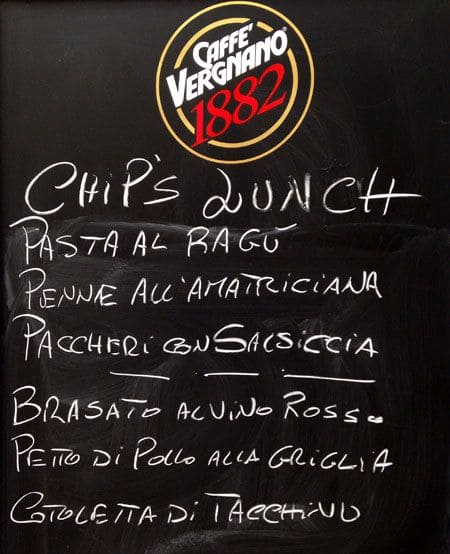 CAFFÈ
VERGNANO
1882
CHIP'S LUNCH
PASTA AL RAGÙ
PENNE ALL'AMATRICIANA
PACCHERI CON SALSICCIA
BRASATO AL VINO ROSSO
PETTO DI POLLO ALLA GRIGLIA
COTOLETTA DI TACCHINO